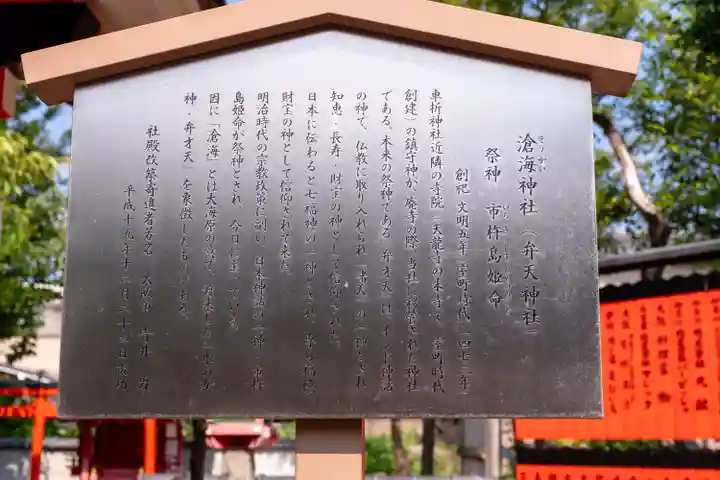 滄海神社（弁天神社）
そうかい
祭神　市杵島姫命
いちきしまひめのみこと
創祀　文明五年（室町時代　一四七三年）
車折神社近隣の寺院（天龍寺の末寺で、室町時代
創建）の鎮守神が、廃寺の際、当社に移祭された神社
である。本来の祭神である「弁才天」は、インド神話
の神で、仏教に取り入れられ「諸天」の一神とされ
知恵・長寿・財宝の神として信仰された。
日本に伝わると七福神の一神とされ、専ら福徳・
財宝の神として信仰されて来た。
明治時代の宗教政策に副い、日本神話の一神・市杵
島姫命が祭神とされ、今日に至っている。
因に「滄海」とは大海原の意で、
神・弁才天」を象徴したものである。
社殿改築寄進者芳名　大阪市
平成十九年十二月二十四日竣功